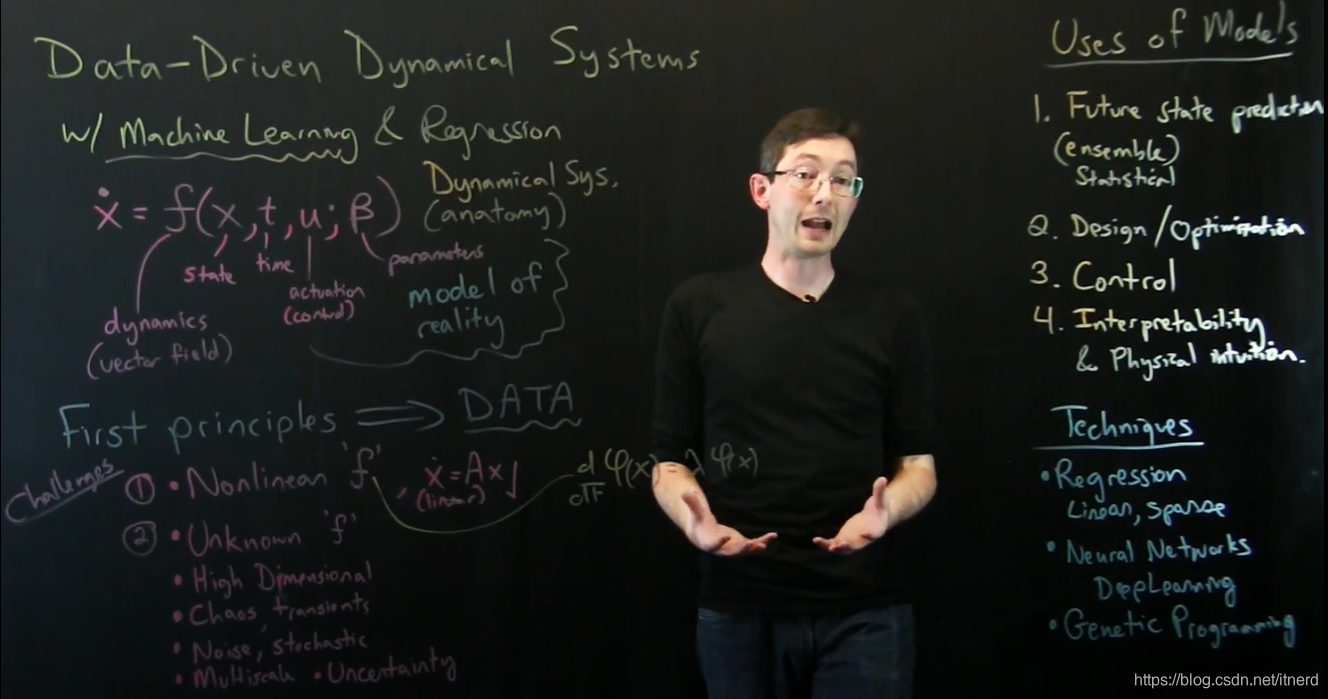 Data-Driven Dynamical Systems
w/ Machine Learning & Regression
ẋ = f(x, t, u; β)
Dynamical Sys.
(anatomy)
state
time
actuation
(control)
parameters
dynamics
(vector field)
model of
reality
First principles ⇒ DATA
Challenges
① • Nonlinear 'f' , ẋ = Ax
(linear)
d φ(x) = λ φ(x)
② • Unknown 'f'
• High Dimensional
• Chaos, transients
• Noise, stochastic
• Multiscale • Uncertainty
Uses of Models
1. Future state prediction
(ensemble)
Statistical
2. Design/Optimization
3. Control
4. Interpretability
& Physical intuition.
Techniques
• Regression
Linear, sparse
• Neural Networks
Deep Learning
• Genetic Programming
https://blog.csdn.net/itnerd